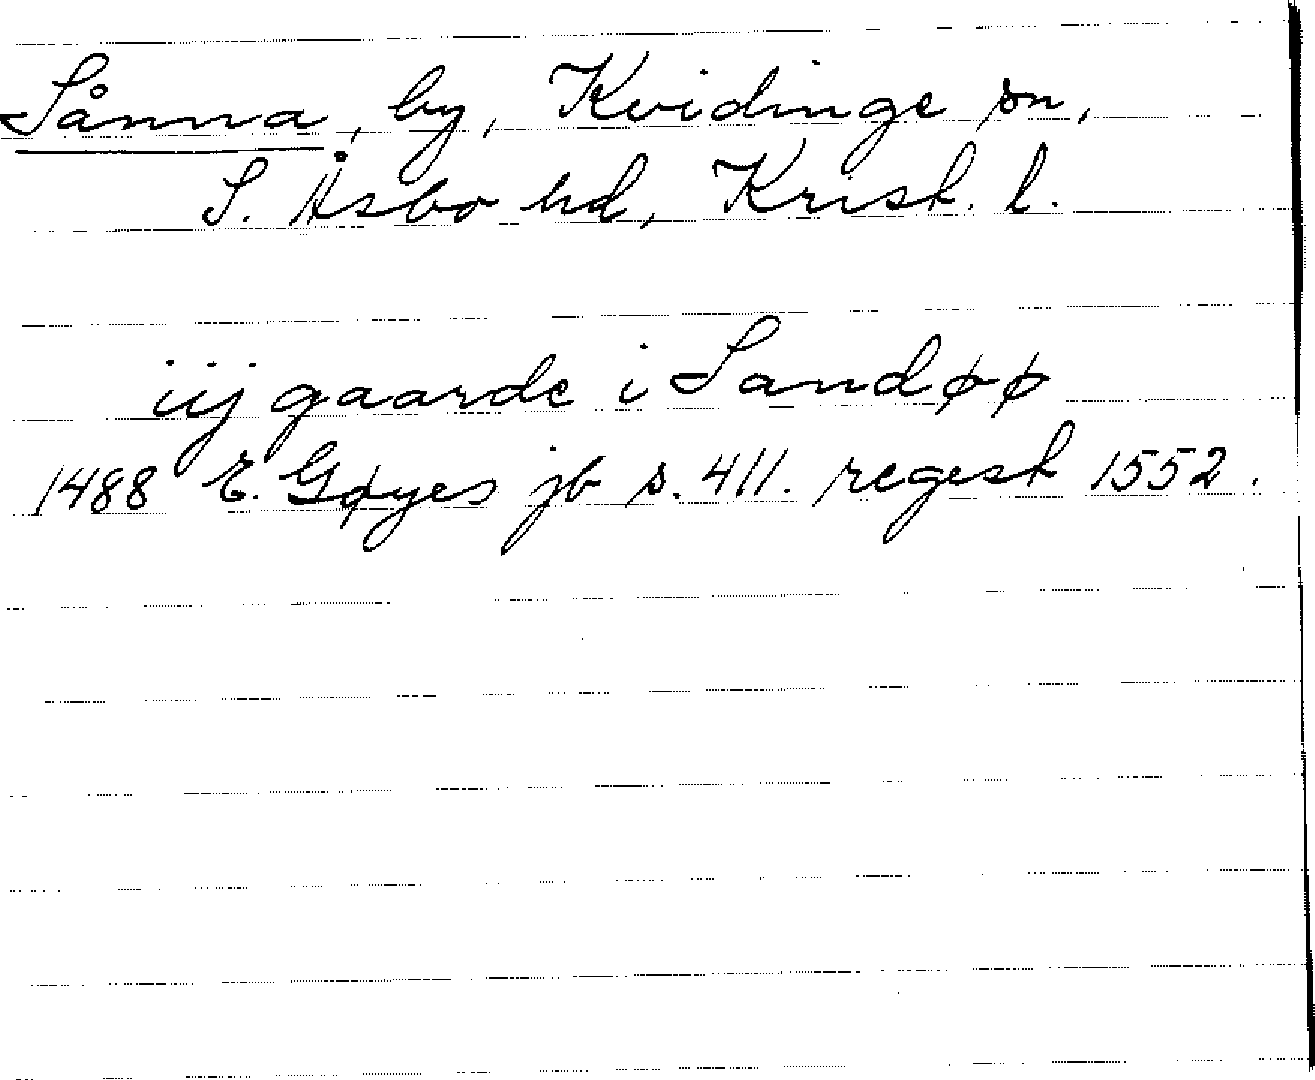 Sånna, by, Kvidinge sn,
S. Åsbo hd, Krist. l.
iij gaarde i Sandøø
1488 E. Gøyes jb s. 411. regest 1552.